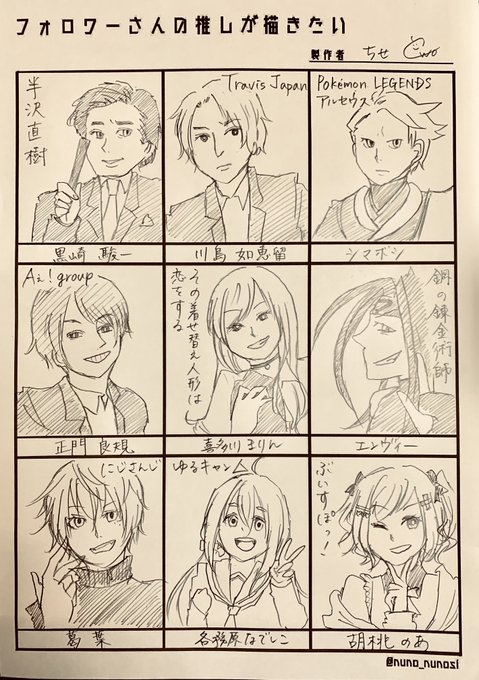 フォロワーさんの推しが描きたい
製作者 ちせ
半沢直樹
黒崎 駿一
Travis Japan
川島 如恵留
Pokémon LEGENDS
アルセウス
シマボシ
Aぇ! group
正門 良規
その着せ替え人形は
恋をする
喜多川まりん
鋼の錬金術師
エンヴィー
にじさんじ
葛葉
ゆるキャン△
各務原なでしこ
ぶいすぽっ!
胡桃 のあ
@nuno_nunosi